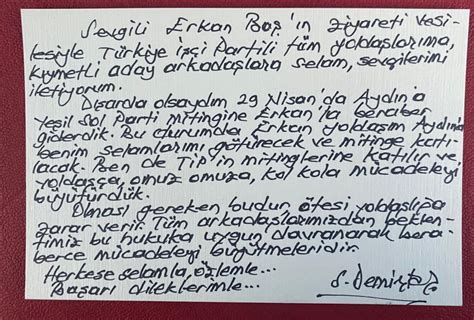 Sevgili Erkan Baş'ın ziyareti vesi-
lesiyle Türkiye işçi Partili tüm yoldaşlarıma,
kıymetli aday arkadaşlara selam, sevgilerimi
iletiyorum.
Dışarda olsaydım 29 Nisan'da Aydın'a
Yeşil Sol Parti mitingine Erkan'la beraber
giderdik. Bu durumda Erkan yoldaşım Aydın'a
benim selamlarımı götürecek ve mitinge katı-
lacak. Ben de TİP'in mitinglerine katılır ve,
yoldaşça, omuz omuza, kol kola mücadeleyi
büyütürdük.
Olması gereken budur, ötesi yoldaşlığa
zarar verir. Tüm arkadaşlarımızdan beklen-
timiz bu hukuka uygun davranarak bera-
berce mücadeleyi büyütmeleridir.
Herkese selamla, özlemle...
Başarı dileklerimle...
S. Demirtaş